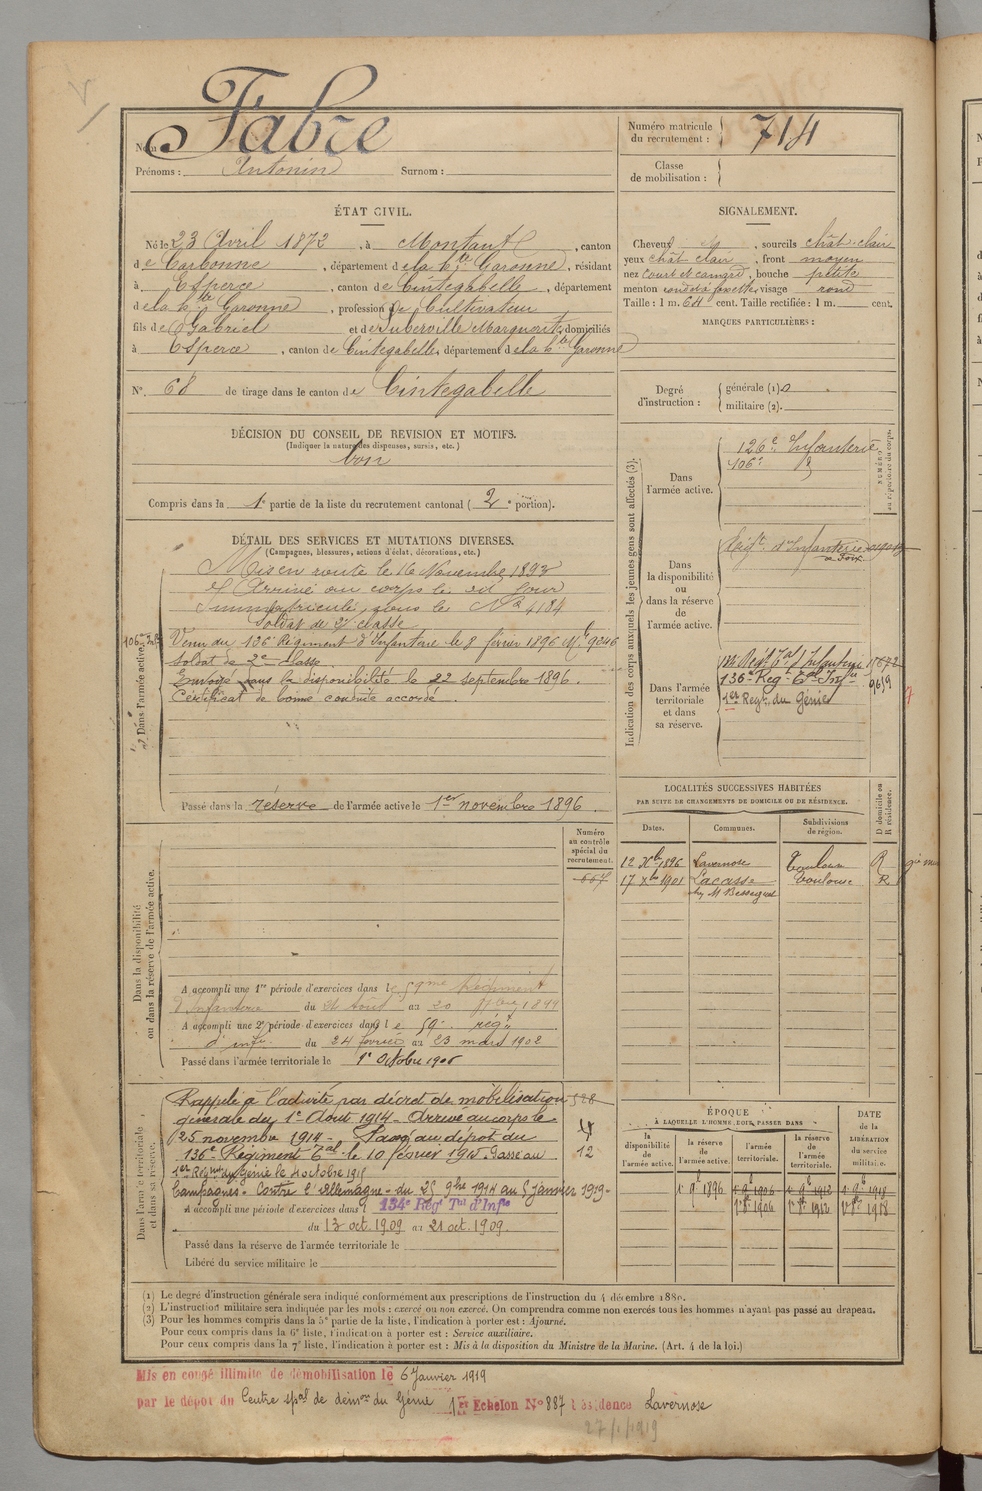 Nom : Fabre
Prénoms : Antonin Surnom :
Numéro matricule du recrutement : 714
Classe de mobilisation :
ÉTAT CIVIL.
Né le 23 Avril 1872, à Montaut, canton
de Carbonne, département de la hte Garonne, résidant
à Esperce, canton de Cintegabelle, département
de la hte Garonne, profession de Cultivateur
fils de Gabriel et de Suberville Marguerite, domiciliés
à Esperce, canton de Cintegabelle, département de la hte Garonne
N°. 68 de tirage dans le canton de Cintegabelle
SIGNALEMENT.
Cheveux , sourcils chât-clair
yeux chât clair, front moyen
nez court et camard, bouche petite
menton rond à fossette, visage rond
Taille : 1 m. 64 cent. Taille rectifiée : 1 m. cent.
MARQUES PARTICULIÈRES :
Degré d'instruction : générale (1).
militaire (2).
DÉCISION DU CONSEIL DE REVISION ET MOTIFS.
(Indiquer la nature des dispenses, sursis, etc.)
bon
Compris dans la 1e partie de la liste du recrutement cantonal ( 2e portion).
DÉTAIL DES SERVICES ET MUTATIONS DIVERSES.
(Campagnes, blessures, actions d'éclat, décorations, etc.)
Dans l'armée active.
Mis en route le 16 Novembre 1893
Arrivé au corps le dit jour
Immatriculé sous le No 4184
Soldat de 2e classe
106e Infie
Venu du 126e Régiment d'Infanterie le 8 février 1896 No 9046
Soldat de 2e classe.
Envoyé dans la disponibilité le 22 septembre 1896.
Certificat de bonne conduite accordé.
Passé dans la réserve de l'armée active le 1er novembre 1896.
Indication des corps auxquels les jeunes gens sont affectés (3).
NUMÉRO au répertoire du corps.
Dans l'armée active.
126e Infanterie
106e
Dans la disponibilité ou dans la réserve de l'armée active.
Régt. d'Infanterie
à Foix
Dans l'armée territoriale et dans sa réserve.
134 Régt Tal d'Infanterie
136e Régt Tal Infie 9619
1er Regt. du Génie
LOCALITÉS SUCCESSIVES HABITÉES
PAR SUITE DE CHANGEMENTS DE DOMICILE OU DE RÉSIDENCE.
Dates. Communes. Subdivisions de région. D domicile ou R résidence.
12 Xbre 1896 Lavernose Toulouse R
17 Xbre 1901 Lacasse Toulouse R
Dans la disponibilité ou dans la réserve de l'armée active.
Numéro au contrôle spécial du recrutement.
667
A accompli une 1re période d'exercices dans le 59me Régiment
d'Infanterie du 24 Août au 20 7bre 1899
A accompli une 2e période d'exercices dans le 59e régt
d'infie du 24 février au 23 mars 1902
Passé dans l'armée territoriale le 1er Octobre 1906
Dans l'armée territoriale et dans sa réserve.
Rappelé à l'activité par décret de mobilisation 528
générale du 1er Août 1914 - Arrivé au corps le
25 novembre 1914 - Passé au dépôt du
136e Régiment Tal le 10 février 1915. Passé au 12
1er Régt du Génie le 4 octobre 1915
Campagnes - Contre l'Allemagne - du 25 9bre 1914 au 5 janvier 1919 -
A accompli une période d'exercices dans l 134e Régt Tal d'Infie
du 13 oct. 1909 au 21 oct. 1909.
Passé dans la réserve de l'armée territoriale le
Libéré du service militaire le
ÉPOQUE
À LAQUELLE L'HOMME DOIT PASSER DANS
la disponibilité de l'armée active. la réserve de l'armée active l'armée territoriale. la réserve de l'armée territoriale.
DATE de la LIBÉRATION du service militaire.
1er 9bre 1896 1er 9bre 1906 1er 9bre 1912 1er 9bre 1918
1er 8bre 1906 1er 8bre 1912 1er 8bre 1918
(1) Le degré d'instruction générale sera indiqué conformément aux prescriptions de l'instruction du 4 décembre 1889.
(2) L'instruction militaire sera indiquée par les mots : exercé ou non exercé. On comprendra comme non exercés tous les hommes n'ayant pas passé au drapeau.
(3) Pour les hommes compris dans la 5e partie de la liste, l'indication à porter est : Ajourné.
Pour ceux compris dans la 6e liste, l'indication à porter est : Service auxiliaire.
Pour ceux compris dans la 7e liste, l'indication à porter est : Mis à la disposition du Ministre de la Marine. (Art. 4 de la loi.)
Mis en congé illimité de démobilisation le 6 Janvier 1919
par le dépôt du Centre spal de démon du Génie 1er Echelon N° 887 Résidence Lavernose
27/1/1919